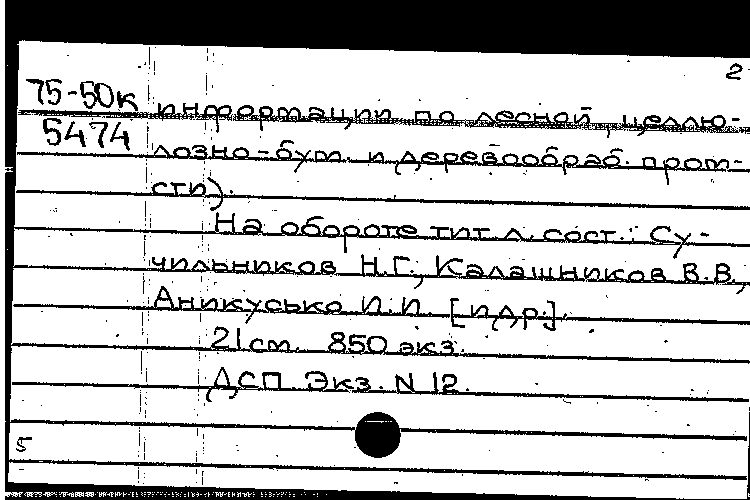 2
75-50к информации по лесной, целлю-
5474 лозно-бум. и деревообраб. пром-
сти).
На обороте тит. л. сост.: Су-
чильников Н.Г., Калашников В.В.,
Аникусько И.И. [и др.].
21 см. 850 экз.
ДСП Экз. N 12.
5